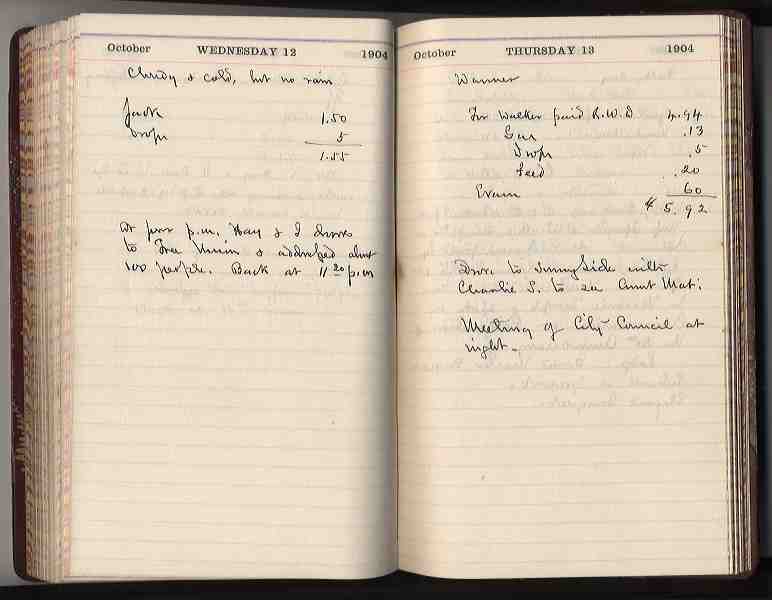 October WEDNESDAY 12 1904
Cloudy & cold, but no rain
Jack 1.50
Drops 5
1.55
At four p.m. Hay & I drove
to Free Union & addressed about
100 people. Back at 11 20 p.m
October THURSDAY 13 1904
Warmer
For Walker paid R.W.D 4.94
Gun .13
Drops .5
feed .20
Evans 60
5.92
Drove to Sunny Side with
Charlie S. to see Aunt Mat.
Meeting of City Council at
night.